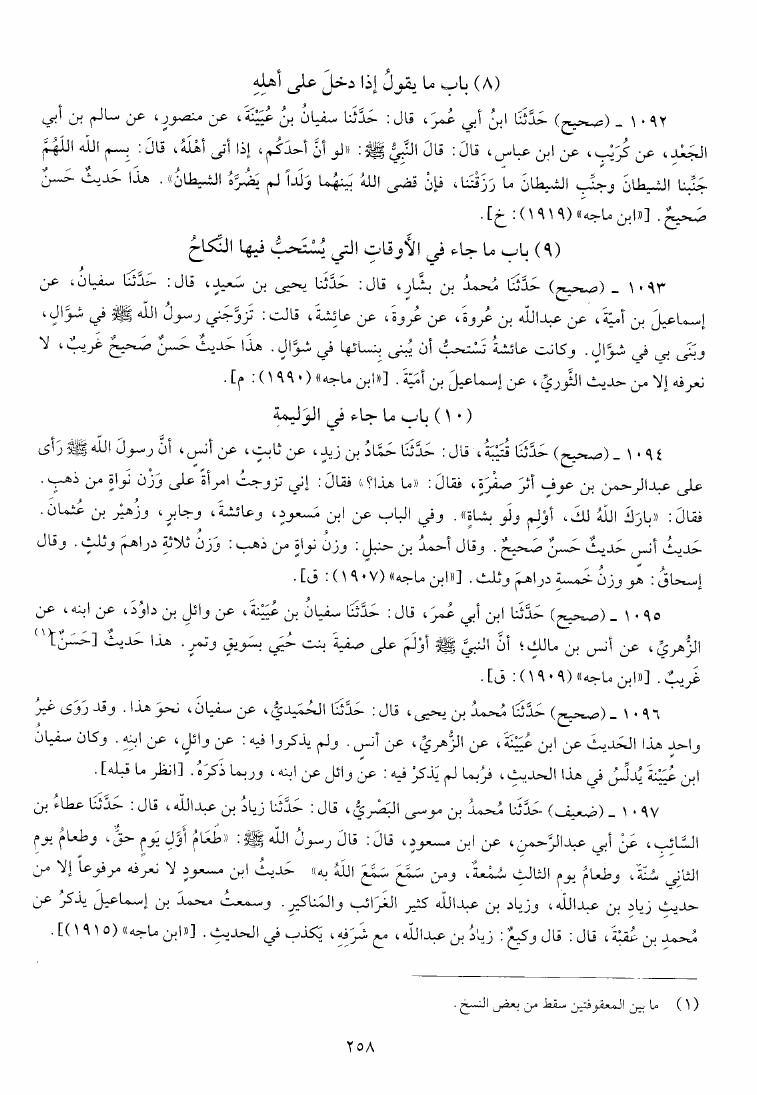 (٨) باب ما يقولُ إذا دخلَ على أهلِهِ
١٠٩٢ ـ (صحيح) حَدَّثَنَا ابنُ أبي عُمرَ، قال: حَدَّثَنا سفيانُ بنُ عُيَيْنَةَ، عن منصورٍ، عن سالم بن أبي
الجَعْدِ، عن كُرَيْبٍ، عن ابن عباس، قالَ: قالَ النَّبِيُّ ﷺ: «لو أنَّ أحدَكُم، إذا أتى أهْلَهُ، قالَ: بِسم الله اللَّهُمَّ
جَنِّبنا الشيطانَ وجنِّبِ الشيطانَ ما رَزَقْتَنا، فإنْ قضى اللهُ بَينهُما وَلَداً لم يَضُرَّهُ الشيطانُ». هذَا حَديثٌ حَسنٌ
صَحيحٌ. [«ابن ماجه» (١٩١٩): خ].
(٩) باب ما جاء في الأَوقاتِ التي يُسْتَحبُّ فيها النِّكاحُ
١٠٩٣ ـ (صحيح) حَدَّثَنَا مُحمدُ بن بشَّارٍ، قال: حَدَّثَنا يحيى بن سَعيدٍ، قال: حَدَّثَنَا سفيانُ، عن
إسماعيلَ بن أميّةَ، عن عبدالله بن عُروةَ، عن عُروةَ، عن عائِشةَ، قالت: تَزوَّجَني رسولُ الله ﷺ في شوَّالٍ،
وبَنَى بي في شوَّالٍ. وكانت عائشةُ تَسْتحبُّ أن يُبنى بِنسائها في شوَّالٍ. هذَا حَديثٌ حَسنٌ صَحيحٌ غَريبٌ، لا
نعرفه إلا من حديث الثَّوريِّ، عن إسماعيلَ بن أمَيَّةَ. [«ابن ماجه» (١٩٩٠): م].
(١٠) باب ما جاء في الوَليمةِ
١٠٩٤ ـ (صحيح) حَدَّثَنَا قُتَيْبَةُ، قال: حَدَّثَنَا حَمَّادُ بن زيدٍ، عن ثابتٍ، عن أنسٍ، أنَّ رسولَ الله ﷺ رَأى
على عبدالرحمن بن عوفٍ أثرَ صفْرَةٍ، فقالَ: «ما هذا؟» فقالَ: إني تزوجتُ امرأةً على وَزْن نَواةٍ من ذهبٍ.
فقالَ: «بارَكَ اللهُ لكَ، أوْلِم ولَو بشاةٍ». وفي الباب عن ابن مَسعودٍ، وعائشةَ، وجابرٍ، وزُهيْر بن عُثمانَ.
حَديثُ أنسٍ حَديثٌ حَسنٌ صَحيحٌ. وقال أحمدُ بن حنبلٍ: وزنُ نواةٍ من ذهب: وَزنُ ثلاثةِ دراهمَ وثلثٍ. وقال
إسحاقُ: هو وزنُ خَمسةِ دراهمَ وثلث. [«ابن ماجه» (١٩٠٧): ق].
١٠٩٥ ـ (صحيح) حَدَّثَنا ابن أبي عُمرَ، قال: حَدَّثَنَا سفيانُ بن عُيَيْنَةَ، عن وائلِ بن داوُدَ، عن ابنه، عن
الزُّهريِّ، عن أنس بن مالكٍ؛ أنَّ النبيَّ ﷺ أوْلَمَ على صفيةَ بنت حُيَي بسَويقٍ وتمرٍ. هذا حَديثٌ [حَسَنٌ](١)
غَريبٌ. [«ابن ماجه» (١٩٠٩): ق].
١٠٩٦ ـ (صحيح) حَدَّثَنَا مُحمدُ بن يحيى، قال: حَدَّثَنَا الحُمَيديُّ، عن سفيانَ، نحوَ هذا. وقد رَوَى غيرُ
واحدٍ هذا الحَديثَ عن ابن عُيَيْنَةَ، عن الزُّهريِّ، عن أنسٍ. ولم يذكروا فيه: عن وائلٍ، عن ابنِهِ. وكان سفيانُ
ابن عُيَيْنَةَ يُدلِّسُ في هذا الحديثِ، فرُبما لم يَذكرْ فيه: عن وائل عن ابنه، وربما ذكرَهُ. [انظر ما قبله].
١٠٩٧ ـ (ضعيف) حَدَّثَنا مُحمدُ بن موسى البَصْريُّ، قال: حَدَّثَنَا زيادُ بن عبدالله، قال: حَدَّثَنَا عطاءُ بن
السَّائِبِ، عَنْ أبي عبدالرَّحمنِ، عن ابن مسعودٍ، قالَ: قالَ رسولُ الله ﷺ: «طَعَامُ أوَّلِ يَومٍ حقٌّ، وطعامُ يومِ
الثاني سُنَّةٌ، وطعامُ يومِ الثالثِ سُمْعةٌ، ومن سَمَّعَ سَمَّعَ اللهُ به» حَديثُ ابن مسعودٍ لا نعرفه مرفوعاً إلا من
حديثِ زيادِ بن عبدالله، وزياد بن عبدالله كثير الغَرائب والمَناكيرِ. وسمعتُ محمدَ بن إسماعيلَ يذكرُ عن
مُحمدِ بن عُقبْةَ، قال: قال وكيعٌ: زيادُ بن عبدالله، مع شَرَفِهِ، يَكذب في الحديثِ. [«ابن ماجه» (١٩١٥)].
(١) ما بين المعقوفتين سقط من بعض النسخ.
٢٥٨